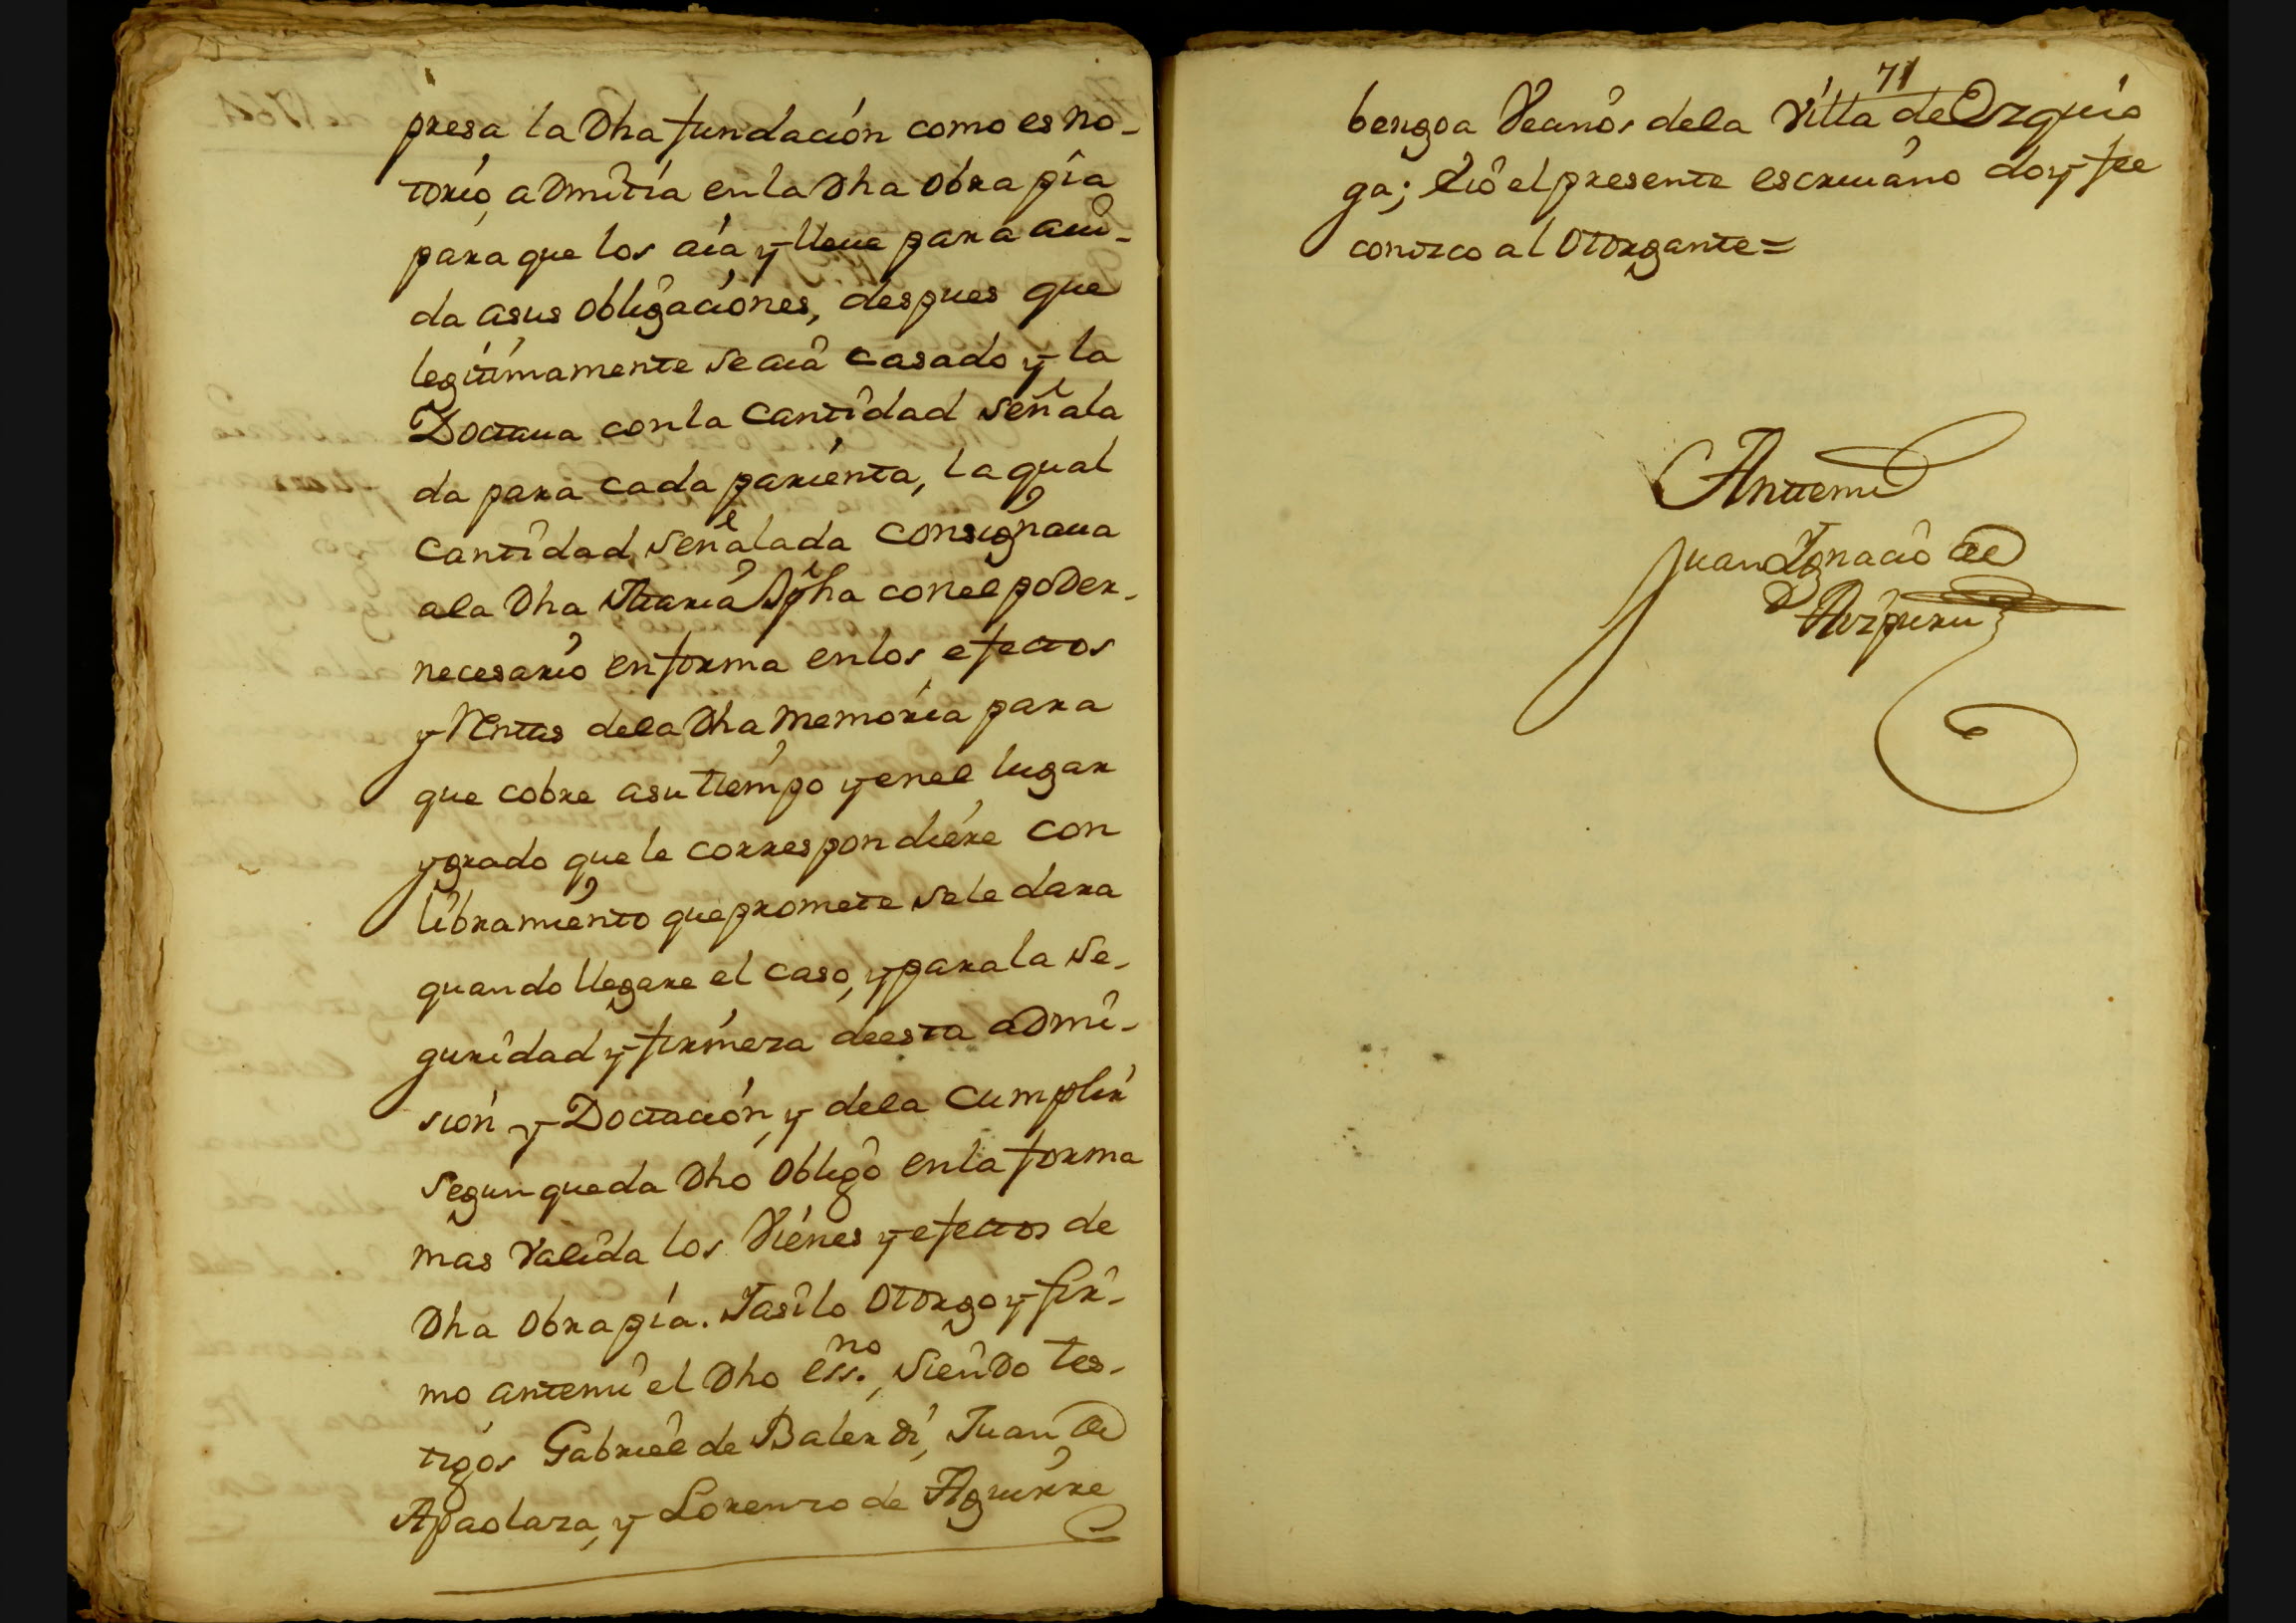 presa la Dha fundación como es no-
torio, admitia en la Dha obra pia
para que los aia y lleue para aiu-
da asus obligaciones, despues que
legitimamente se aia casado y la
Doctaua con la cantidad señala
da para cada parienta, la qual
cantidad, señalada consignaua
ala Dha Maria Jpha con el poder
necesario en forma en los efectos
y Rentas dela Dha memoria para
que cobre asu tiempo y en el lugar
ygrado que le correspondiere con
libramiento que promete se le dara
quando llegare el caso, y para la se-
guridad y firmeza de esta admi-
sion y Doctación, y dela cumplir
segun queda Dho obligò en la forma
mas valida los Vienes y efectos de
Dha obra pia. Y asi lo otorgo y fir-
mo antemi el Dho essno., siendo tes-
tigos Gabriel de Balerdi, Juan de
Apaolaza, y Lorenzo de Aguirre
71
bengoa Vecinos dela Villa de Ozquia
ga; è iò el presente escriuano doy fee
conozco al otorgante=
Antemi
Juan Ignacio de
Aizpuru